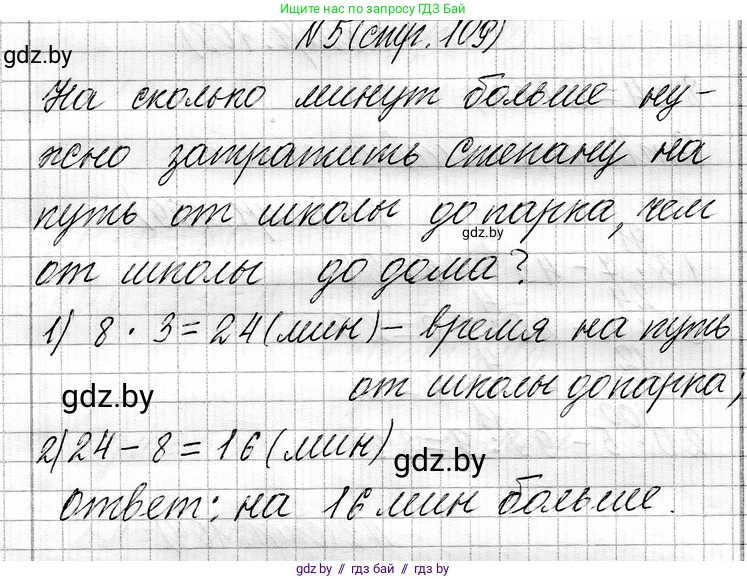 Ищите нас по запросу ГДЗ БАЙ
gdz.by
№5 (стр. 109)
На сколько минут больше ну-
жно затратить Степану на
путь от школы до парка, чем
gdz.by
от школы до дома?
1) 8 · 3 = 24 (мин) - время на путь
gdz.by
от школы до парка;
2) 24 - 8 = 16 (мин)
gdz.by
ответ: на 16 мин больше.
gdz.by // гдз бай // gdz by